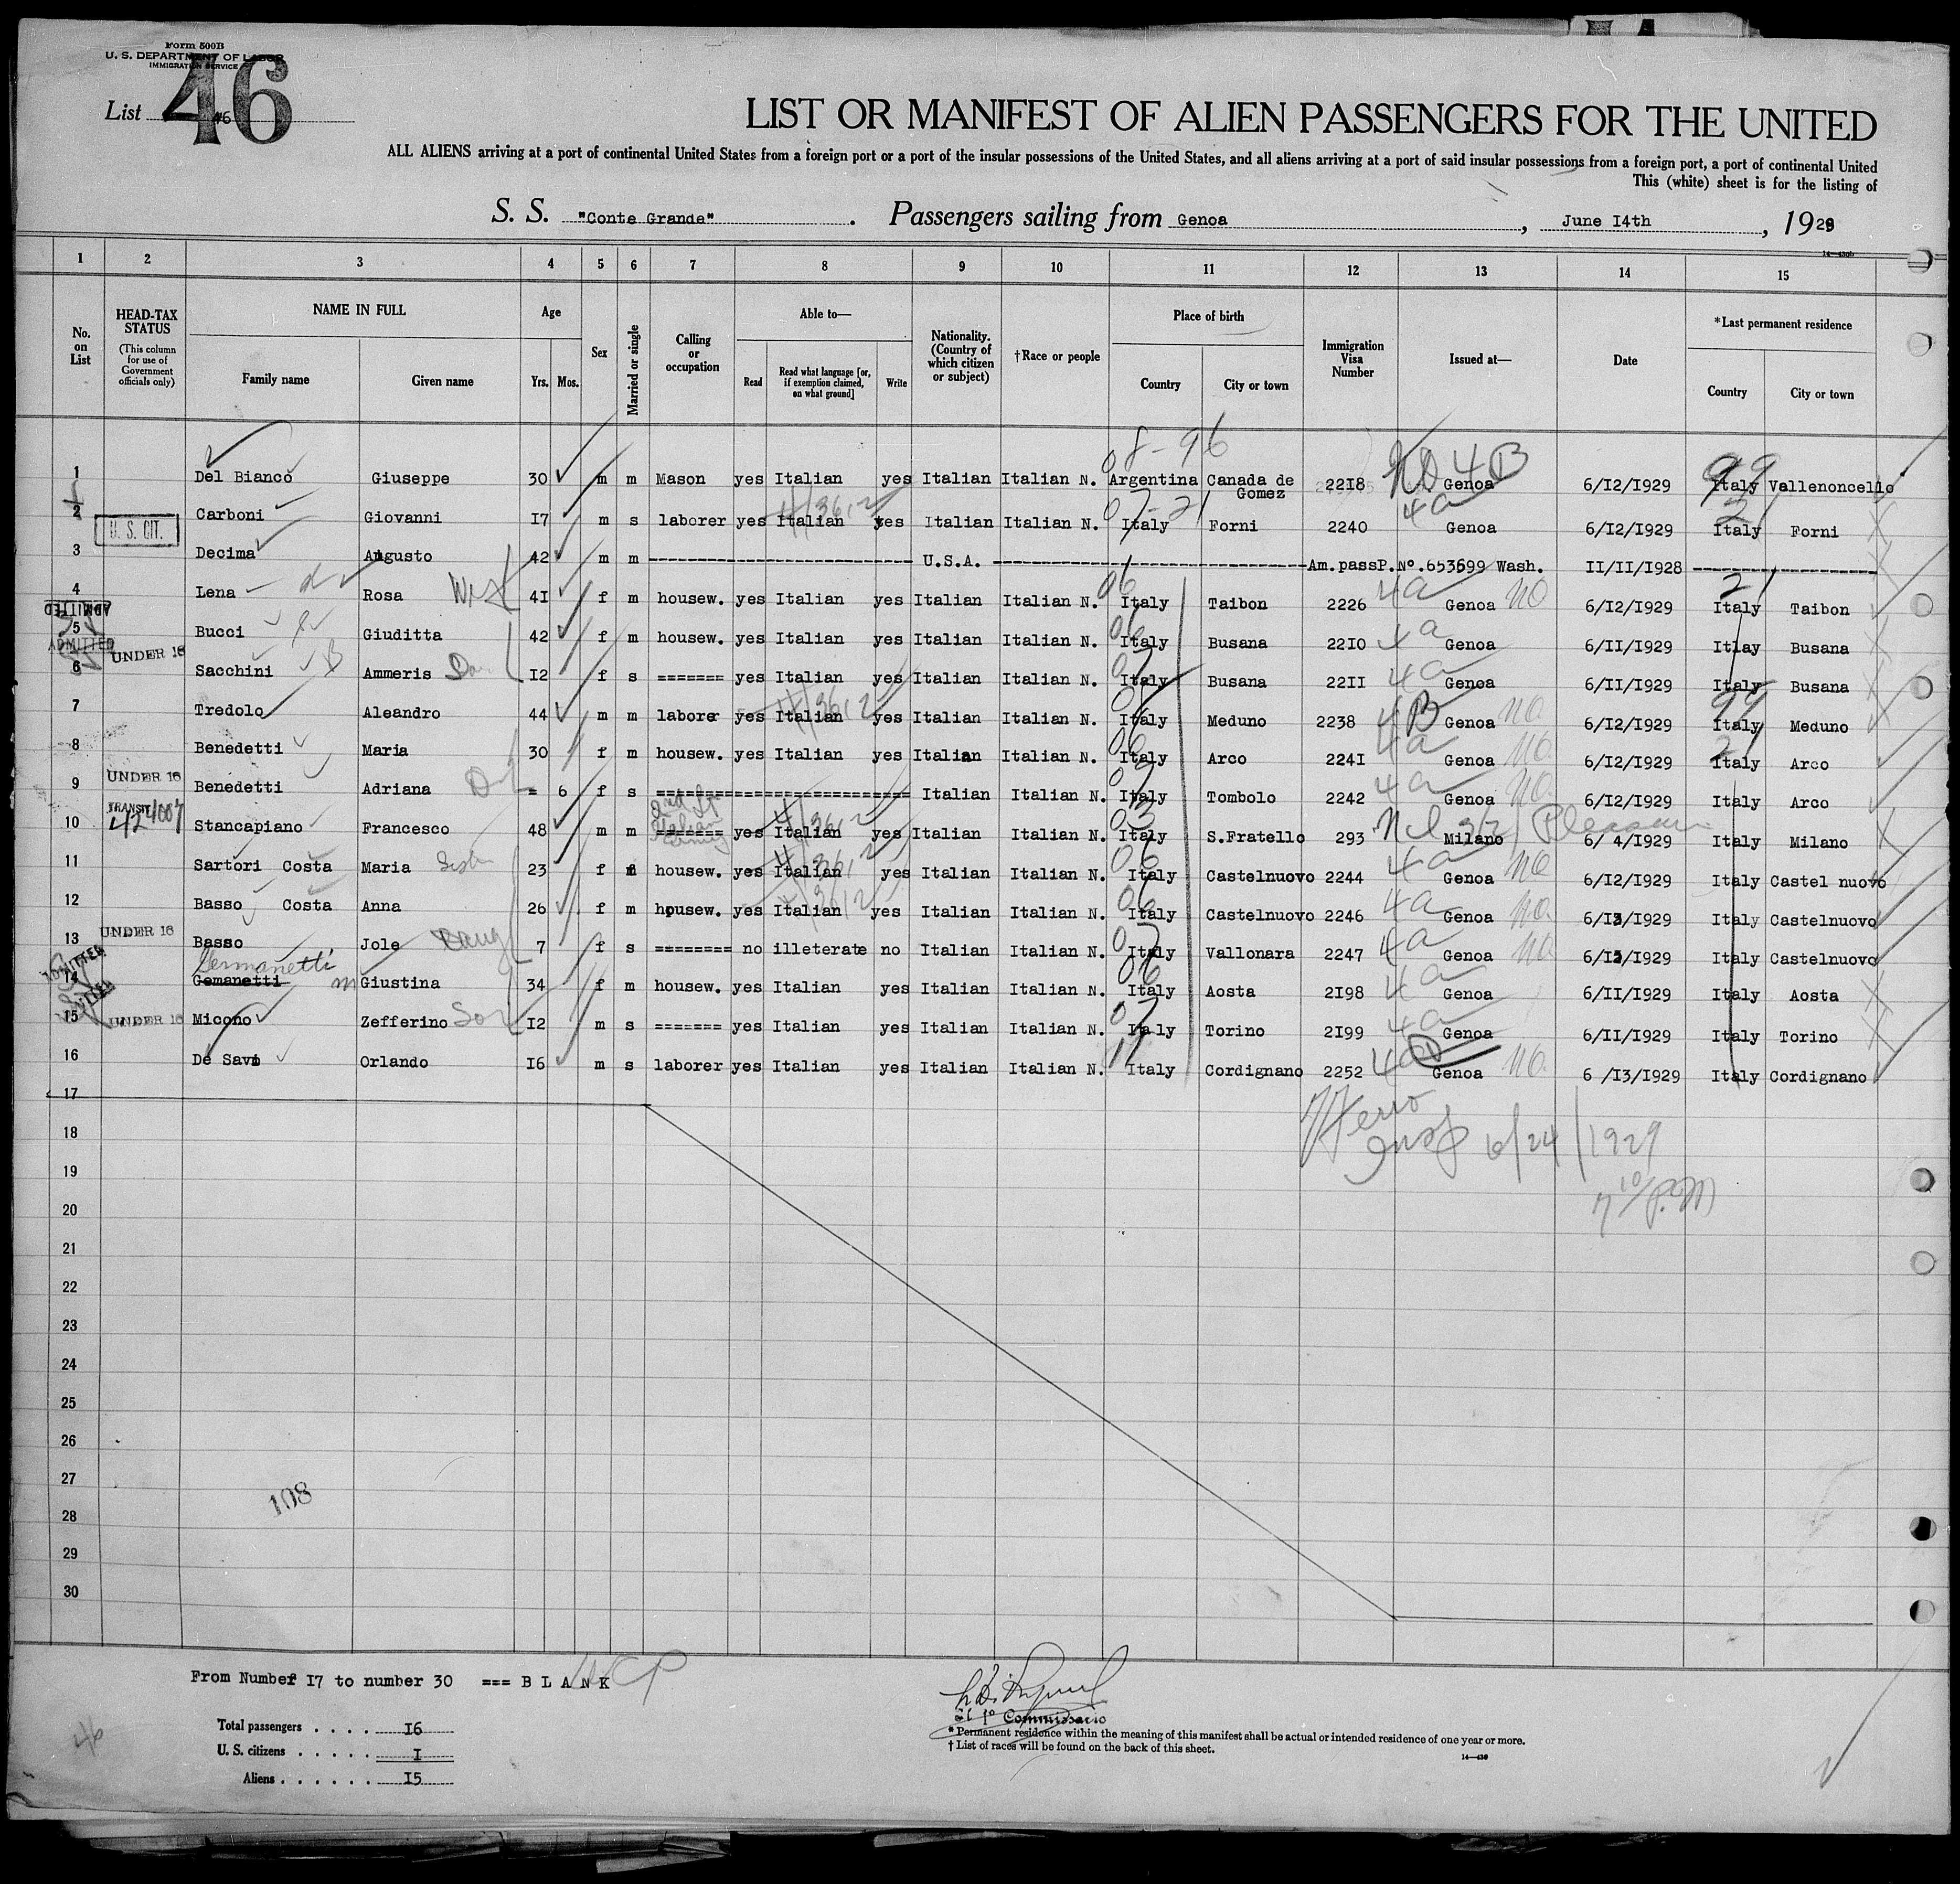 Form 500B
U. S. DEPARTMENT OF LABOR
IMMIGRATION SERVICE
List 46
46
LIST OR MANIFEST OF ALIEN PASSENGERS FOR THE UNITED
ALL ALIENS arriving at a port of continental United States from a foreign port or a port of the insular possessions of the United States, and all aliens arriving at a port of said insular possessions from a foreign port, a port of continental United
This (white) sheet is for the listing of
S. S. "Conte Grande". Passengers sailing from Genoa, June I4th, 1929
14—430b
1 2 3 4 5 6 7 8 9 10 11 12 13 14 15
No. on List
HEAD-TAX STATUS (This column for use of Government officials only)
NAME IN FULL
Family name Given name
Age
Yrs. Mos.
Sex
Married or single
Calling or occupation
Able to—
Read
Read what language [or, if exemption claimed, on what ground]
Write
Nationality. (Country of which citizen or subject)
†Race or people
Place of birth
Country City or town
Immigration Visa Number
Issued at—
Date
*Last permanent residence
Country City or town
08-96 4B 99
1 Del Bianco Giuseppe 30 m m Mason yes Italian yes Italian Italian N. Argentina Canada de Gomez 22I8 Genoa 6/I2/I929 Italy Vallenoncello
2 Carboni Giovanni I7 m s laborer yes Italian yes Italian Italian N. Italy Forni 2240 4a Genoa 6/I2/I929 Italy Forni
3 U. S. CIT. Decima Augusto 42 m m ---------- U.S.A. ---------- Am.passP.N°.653699 Wash. II/II/I928 ----------
4 Lena Rosa 4I f m housew. yes Italian yes Italian Italian N. Italy Taibon 2226 4a Genoa NO 6/I2/I929 Italy Taibon
ADMITTED
5 Bucci Giuditta 42 f m housew. yes Italian yes Italian Italian N. Italy Busana 22I0 4a Genoa 6/II/I929 Itlay Busana
ADMITTED
6 UNDER 16 Sacchini Ammeris I2 f s ======= yes Italian yes Italian Italian N. Italy Busana 22II 4a Genoa 6/II/I929 Italy Busana
7 Tredolo Aleandro 44 m m laborer yes Italian yes Italian Italian N. Italy Meduno 2238 4B Genoa NO 6/I2/I929 Italy Meduno
8 Benedetti Maria 30 f m housew. yes Italian yes Italian Italian N. Italy Arco 224I 4a Genoa NO 6/I2/I929 Italy Arco
9 UNDER 16 Benedetti Adriana = 6 f s ========== Italian Italian N. Italy Tombolo 2242 4a Genoa NO 6/I2/I929 Italy Arco
10 TRANSIT Stancapiano Francesco 48 m m ======= yes Italian yes Italian Italian N. Italy S.Fratello 293 Milano Pleasure 6/ 4/I929 Italy Milano
11 Sartori Costa Maria 23 f m housew. yes Italian yes Italian Italian N. Italy Castelnuovo 2244 4a Genoa NO 6/I2/I929 Italy Castel nuovo
12 Basso Costa Anna 26 f m housew. yes Italian yes Italian Italian N. Italy Castelnuovo 2246 4a Genoa NO Italy Castelnuovo
13 UNDER 16 Basso Jole 7 f s ======== no illeterate no Italian Italian N. Italy Vallonara 2247 4a Genoa NO Italy Castelnuovo
Germanetti
14 Gemanetti Giustina 34 f m housew. yes Italian yes Italian Italian N. Italy Aosta 2I98 4a Genoa 6/II/I929 Italy Aosta
15 UNDER 16 Micono Zefferino Son I2 m s ======= yes Italian yes Italian Italian N. Italy Torino 2I99 4a Genoa 6/II/I929 Italy Torino
16 De Savi Orlando I6 m s laborer yes Italian yes Italian Italian N. Italy Cordignano 2252 Genoa NO 6 /I3/I929 Italy Cordignano
17
Insp 6/24/1929
18
19
7 10/ P.M
20
21
22
23
24
25
26
27
108
28
29
30
From Number I7 to number 30 === B L A N K
Total passengers . . . . I6
U. S. citizens . . . . . I
Aliens . . . . . . I5
46
Commissario
* Permanent residence within the meaning of this manifest shall be actual or intended residence of one year or more.
† List of races will be found on the back of this sheet.
14—430